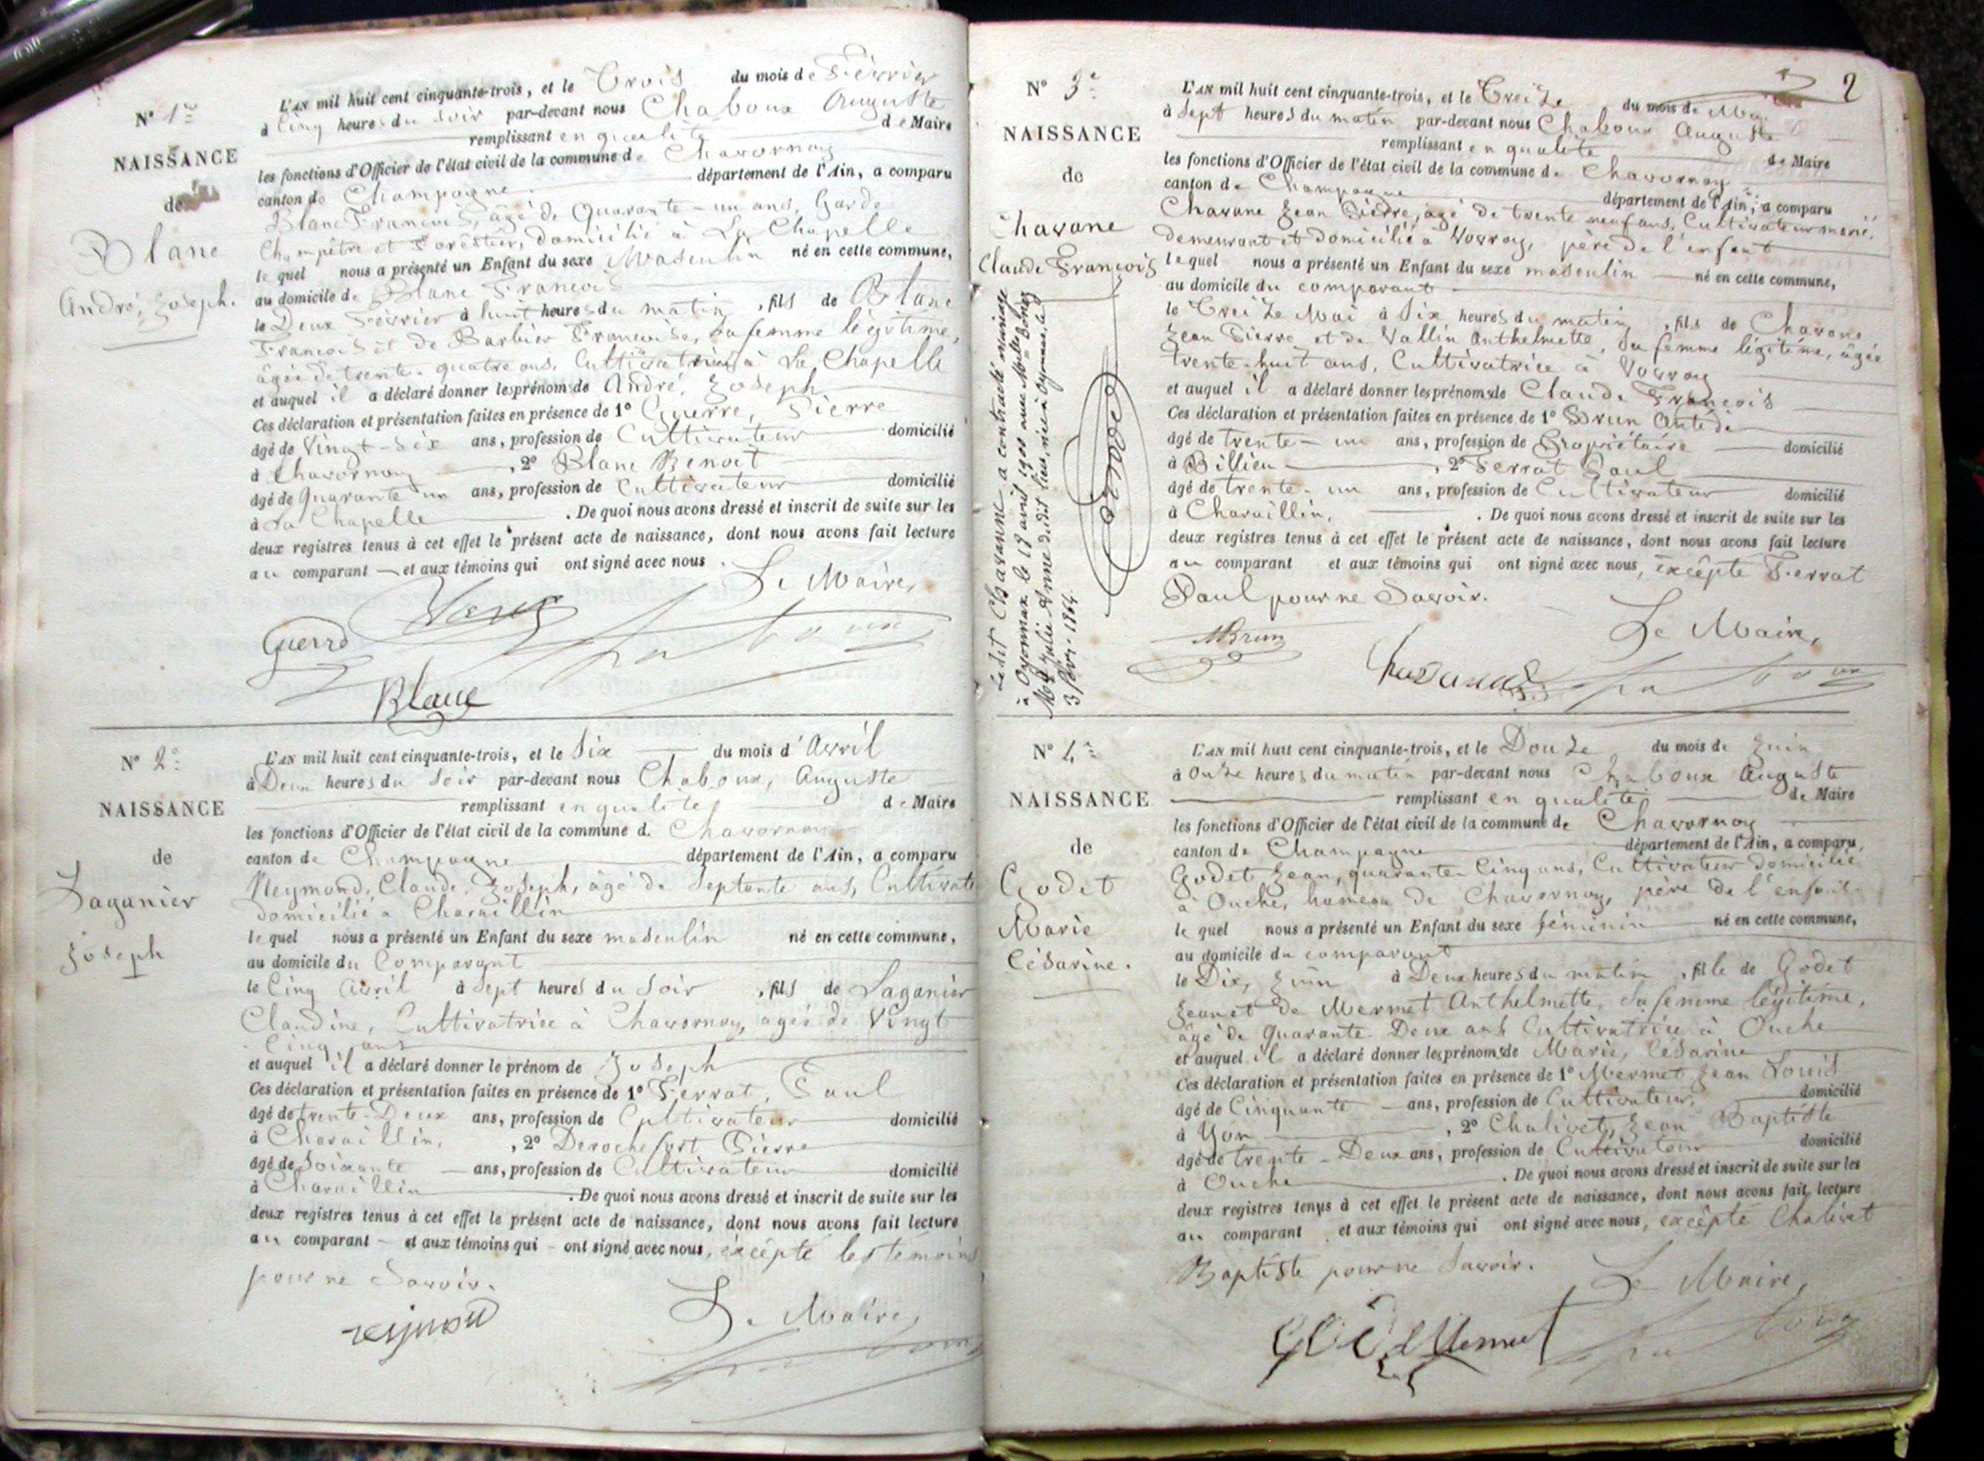 N° 1er
NAISSANCE
de
Blanc
André, Joseph.
L'AN mil huit cent cinquante-trois, et le Trois du mois de Février
à Cinq heures du soir par-devant nous Chaboux Auguste
remplissant en qualité de Maire
les fonctions d'Officier de l'état civil de la commune de Chavornay
canton de Champagne département de l'Ain, a comparu
Blanc François, âgé de Quarante-un ans, Garde
Champêtre et Forestier, domicilié à La Chapelle
le quel nous a présenté un Enfant du sexe Masculin né en cette commune,
au domicile de Blanc François
le Deux Février à huit heures du matin, fils de Blanc
François et de Barbier Françoise, sa femme légitime,
âgée de trente-quatre ans, Cultivatrice à La Chapelle
et auquel il a déclaré donner les prénoms de André, Joseph
Ces déclaration et présentation faites en présence de 1° Guerre, Pierre
âgé de Vingt-Six ans, profession de Cultivateur domicilié
à Chavornay, 2° Blanc Benoit
âgé de Quarante un ans, profession de Cultivateur domicilié
à La Chapelle. De quoi nous avons dressé et inscrit de suite sur les
deux registres tenus à cet effet le présent acte de naissance, dont nous avons fait lecture
au comparant et aux témoins qui ont signé avec nous.
Le Maire,
Guerre
Blanc
N° 2e
NAISSANCE
de
Laganier
Joseph
L'AN mil huit cent cinquante-trois, et le Six du mois d'Avril
à Deux heures du Soir par-devant nous Chaboux, Auguste
remplissant en qualité de Maire
les fonctions d'Officier de l'état civil de la commune d. Chavornay
canton de Champagne département de l'Ain, a comparu
Reymond, Claude, Joseph, âgé de Septante ans, Cultivate
domicilié à Charaillin
le quel nous a présenté un Enfant du sexe masculin né en cette commune,
au domicile du Comparant
le Cinq Avril à Sept heures du Soir, fils de Laganier
Claudine, Cultivatrice à Chavornay, agée de Vingt
Cinq ans
et auquel il a déclaré donner le prénom de Joseph
Ces déclaration et présentation faites en présence de 1° Ferrat, Paul
âgé de trente-Deux ans, profession de Cultivateur domicilié
à Charaillin, 2° Derochefort Pierre
âgé de Soixante ans, profession de Cultivateur domicilié
à Charaillin. De quoi nous avons dressé et inscrit de suite sur les
deux registres tenus à cet effet le présent acte de naissance, dont nous avons fait lecture
au comparant et aux témoins qui ont signé avec nous, excépté les témoins
pour ne Savoir.
Le Maire,
2
N° 3e
NAISSANCE
de
Chavane
Claude François
Ledit Chavanne a contracté mariage
à Oyonnax le 19 avril 1900 avec
Julie Anne dudit lieu, née à Oyonnax, le
3 févr. 1864.
L'AN mil huit cent cinquante-trois, et le Treize du mois de Mai
à Sept heures du matin par-devant nous Chaboux Auguste
remplissant en qualité de Maire
les fonctions d'Officier de l'état civil de la commune de Chavornay
canton de Champagne département de l'Ain, a comparu
Chavane Jean Pierre, âgé de trente neuf ans, Cultivateur marié,
demeurant et domicilié à Vovray, père de l'enfant
le quel nous a présenté un Enfant du sexe masculin né en cette commune,
au domicile du comparant
le Treize Mai à Six heures du matin, fils de Chavane
Jean Pierre et de Vallin Anthelmette, sa femme légitime, âgée
trente-huit ans, Cultivatrice à Vovray
et auquel il a déclaré donner les prénoms de Claude François
Ces déclaration et présentation faites en présence de 1° Brun
âgé de trente-un ans, profession de Propriétaire domicilié
à Billieu, 2° Ferrat Paul
âgé de trente-un ans, profession de Cultivateur domicilié
à Charaillin. De quoi nous avons dressé et inscrit de suite sur les
deux registres tenus à cet effet le présent acte de naissance, dont nous avons fait lecture
au comparant et aux témoins qui ont signé avec nous, excépté Ferrat
Paul pour ne Savoir.
Le Maire,
Brun
N° 4e
NAISSANCE
de
Godet
Marie
Césarine.
L'AN mil huit cent cinquante-trois, et le Douze du mois de Juin
à Onze heures du matin par-devant nous Chaboux Auguste
remplissant en qualité de Maire
les fonctions d'Officier de l'état civil de la commune de Chavornay
canton de Champagne département de l'Ain, a comparu,
Godet Jean, quarante-Cinq ans, Cultivateur domicilié
à Ouche, hameau de Chavornay, père de l'enfant
le quel nous a présenté un Enfant du sexe féminin né en cette commune,
au domicile du comparant
le Dix, Juin à Deux heures du matin, fille de Godet
Jean et de Mermet Anthelmette, sa femme légitime,
âgé de Quarante Deux ans Cultivatrice à Ouche
et auquel il a déclaré donner les prénoms de Marie, Césarine
Ces déclaration et présentation faites en présence de 1° Mermet Jean Louis
âgé de Cinquante ans, profession de Cultivateur, domicilié
à Yon, 2° Chalivet, Jean Baptiste
âgé de trente-Deux ans, profession de Cultivateur domicilié
à Ouche. De quoi nous avons dressé et inscrit de suite sur les
deux registres tenus à cet effet le présent acte de naissance, dont nous avons fait lecture
au comparant et aux témoins qui ont signé avec nous, excépté Chalivet
Baptiste pour ne Savoir.
Le Maire,